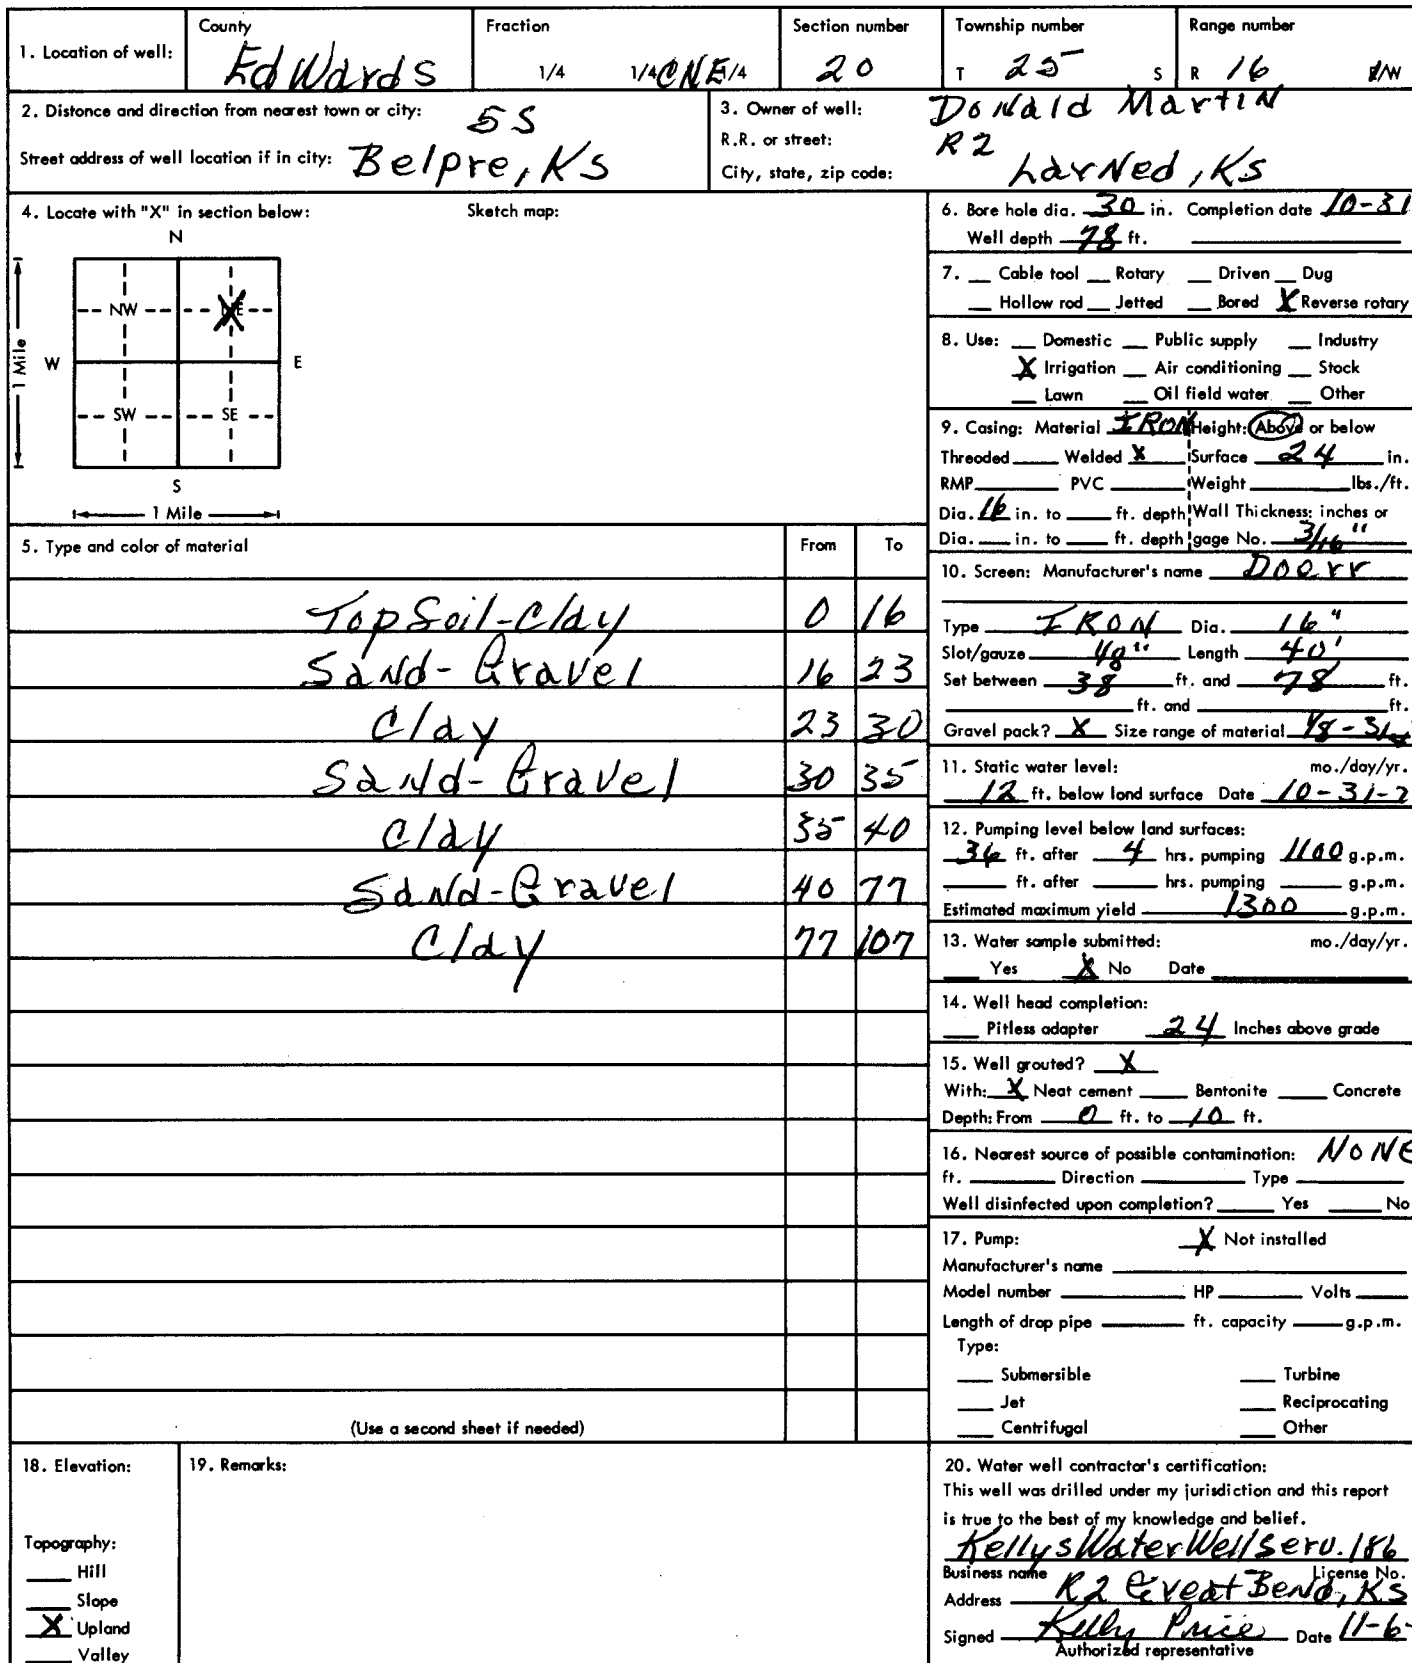 1. Location of well:
County
Ed Wards
Fraction
1/4 1/4 CNE 1/4
Section number
20
Township number
T 25 S
Range number
R 16 E/W
2. Distonce and direction from nearest town or city: 5 S
Street address of well location if in city: Belpre, Ks
3. Owner of well: Donald Martin
R.R. or street: R2
City, state, zip code: Larned, Ks
4. Locate with "X" in section below: Sketch map:
N
NW X NE
W E
SW SE
S
1 Mile
1 Mile
5. Type and color of material From To
Top Soil-Clay 0 16
Sand-Gravel 16 23
Clay 23 30
Sand-Gravel 30 35
Clay 35 40
Sand-Gravel 40 77
Clay 77 107
(Use a second sheet if needed)
6. Bore hole dia. 30 in. Completion date 10-31
Well depth 78 ft.
7. Cable tool Rotary Driven Dug
Hollow rod Jetted Bored X Reverse rotary
8. Use: Domestic Public supply Industry
X Irrigation Air conditioning Stock
Lawn Oil field water Other
9. Casing: Material IRON Height: Above or below
Threoded Welded X Surface 24 in.
RMP PVC Weight lbs./ft.
Dia. 16 in. to ft. depth Wall Thickness: inches or
Dia. in. to ft. depth gage No. 3/16"
10. Screen: Manufacturer's name Doerr
Type IRON Dia. 16"
Slot/gauze Length 40'
Set between 38 ft. and 78 ft.
ft. and ft.
Gravel pack? X Size range of material 1/8 -
11. Static water level: mo./day/yr.
12 ft. below lond surface Date 10-31-7
12. Pumping level below land surfaces:
36 ft. after 4 hrs. pumping 1100 g.p.m.
ft. after hrs. pumping g.p.m.
Estimated maximum yield 1300 g.p.m.
13. Water sample submitted: mo./day/yr.
Yes X No Date
14. Well head completion:
Pitless adapter 24 Inches above grade
15. Well grouted? X
With: X Neat cement Bentonite Concrete
Depth: From 0 ft. to 10 ft.
16. Nearest source of possible contamination: NONE
ft. Direction Type
Well disinfected upon completion? Yes No
17. Pump: X Not installed
Manufacturer's name
Model number HP Volts
Length of drop pipe ft. capacity g.p.m.
Type:
Submersible Turbine
Jet Reciprocating
Centrifugal Other
18. Elevation:
Topography:
Hill
Slope
X Upland
Valley
19. Remarks:
20. Water well contractor's certification:
This well was drilled under my jurisdiction and this report
is true to the best of my knowledge and belief.
Kellys Water Well Serv. 186
Business name License No.
Address R2 Great Bend, Ks
Signed Kelly Price Date 11-6-
Authorized representative